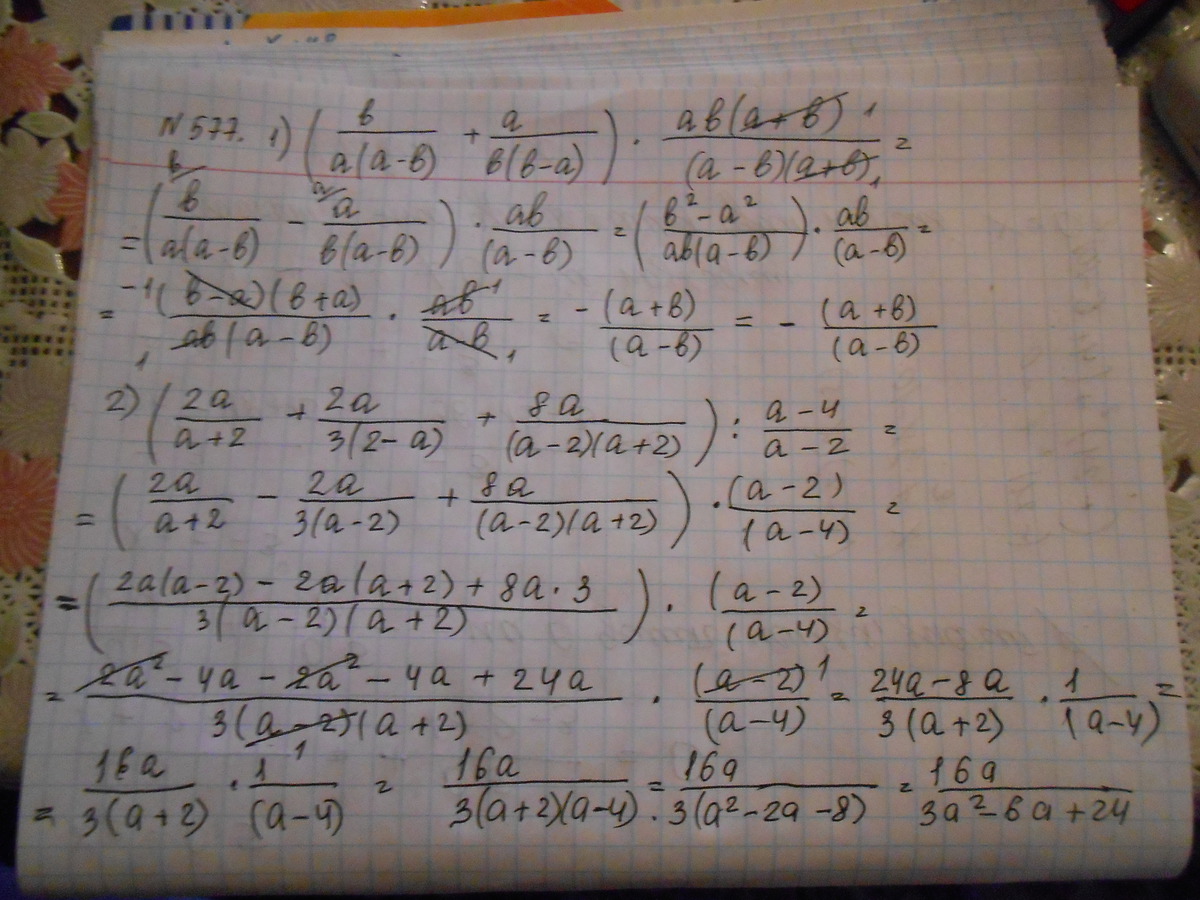 N 577. 1) (в/(a(a-в)) + a/(в(в-a))) · aв(a+в) 1/((a-в)(a+в) 1) =
= (в/(a(a-в)) в - a/(в(a-в)) a) · aв/(a-в) = ((в²-a²)/(aв(a-в))) · aв/(a-в) =
= -1(в-a)(в+a)/(1 aв(a-в)) · aв 1/(a-в 1) = -(a+в)/(a-в) = - (a+в)/(a-в)
2) (2a/(a+2) + 2a/(3(2-a)) + 8a/((a-2)(a+2))) : (a-4)/(a-2) =
= (2a/(a+2) - 2a/(3(a-2)) + 8a/((a-2)(a+2))) · (a-2)/(a-4) =
= ((2a(a-2) - 2a(a+2) + 8a·3)/(3(a-2)(a+2))) · (a-2)/(a-4) =
= (2a² - 4a - 2a² - 4a + 24a)/(3(a-2)(a+2) 1) · (a-2) 1/(a-4) = (24a-8a)/(3(a+2)) · 1/(a-4) =
= 16a/(3(a+2)) · 1/(a-4) = 16a/(3(a+2)(a-4)) = 16a/(3(a²-2a-8)) = 16a/(3a²-6a+24)